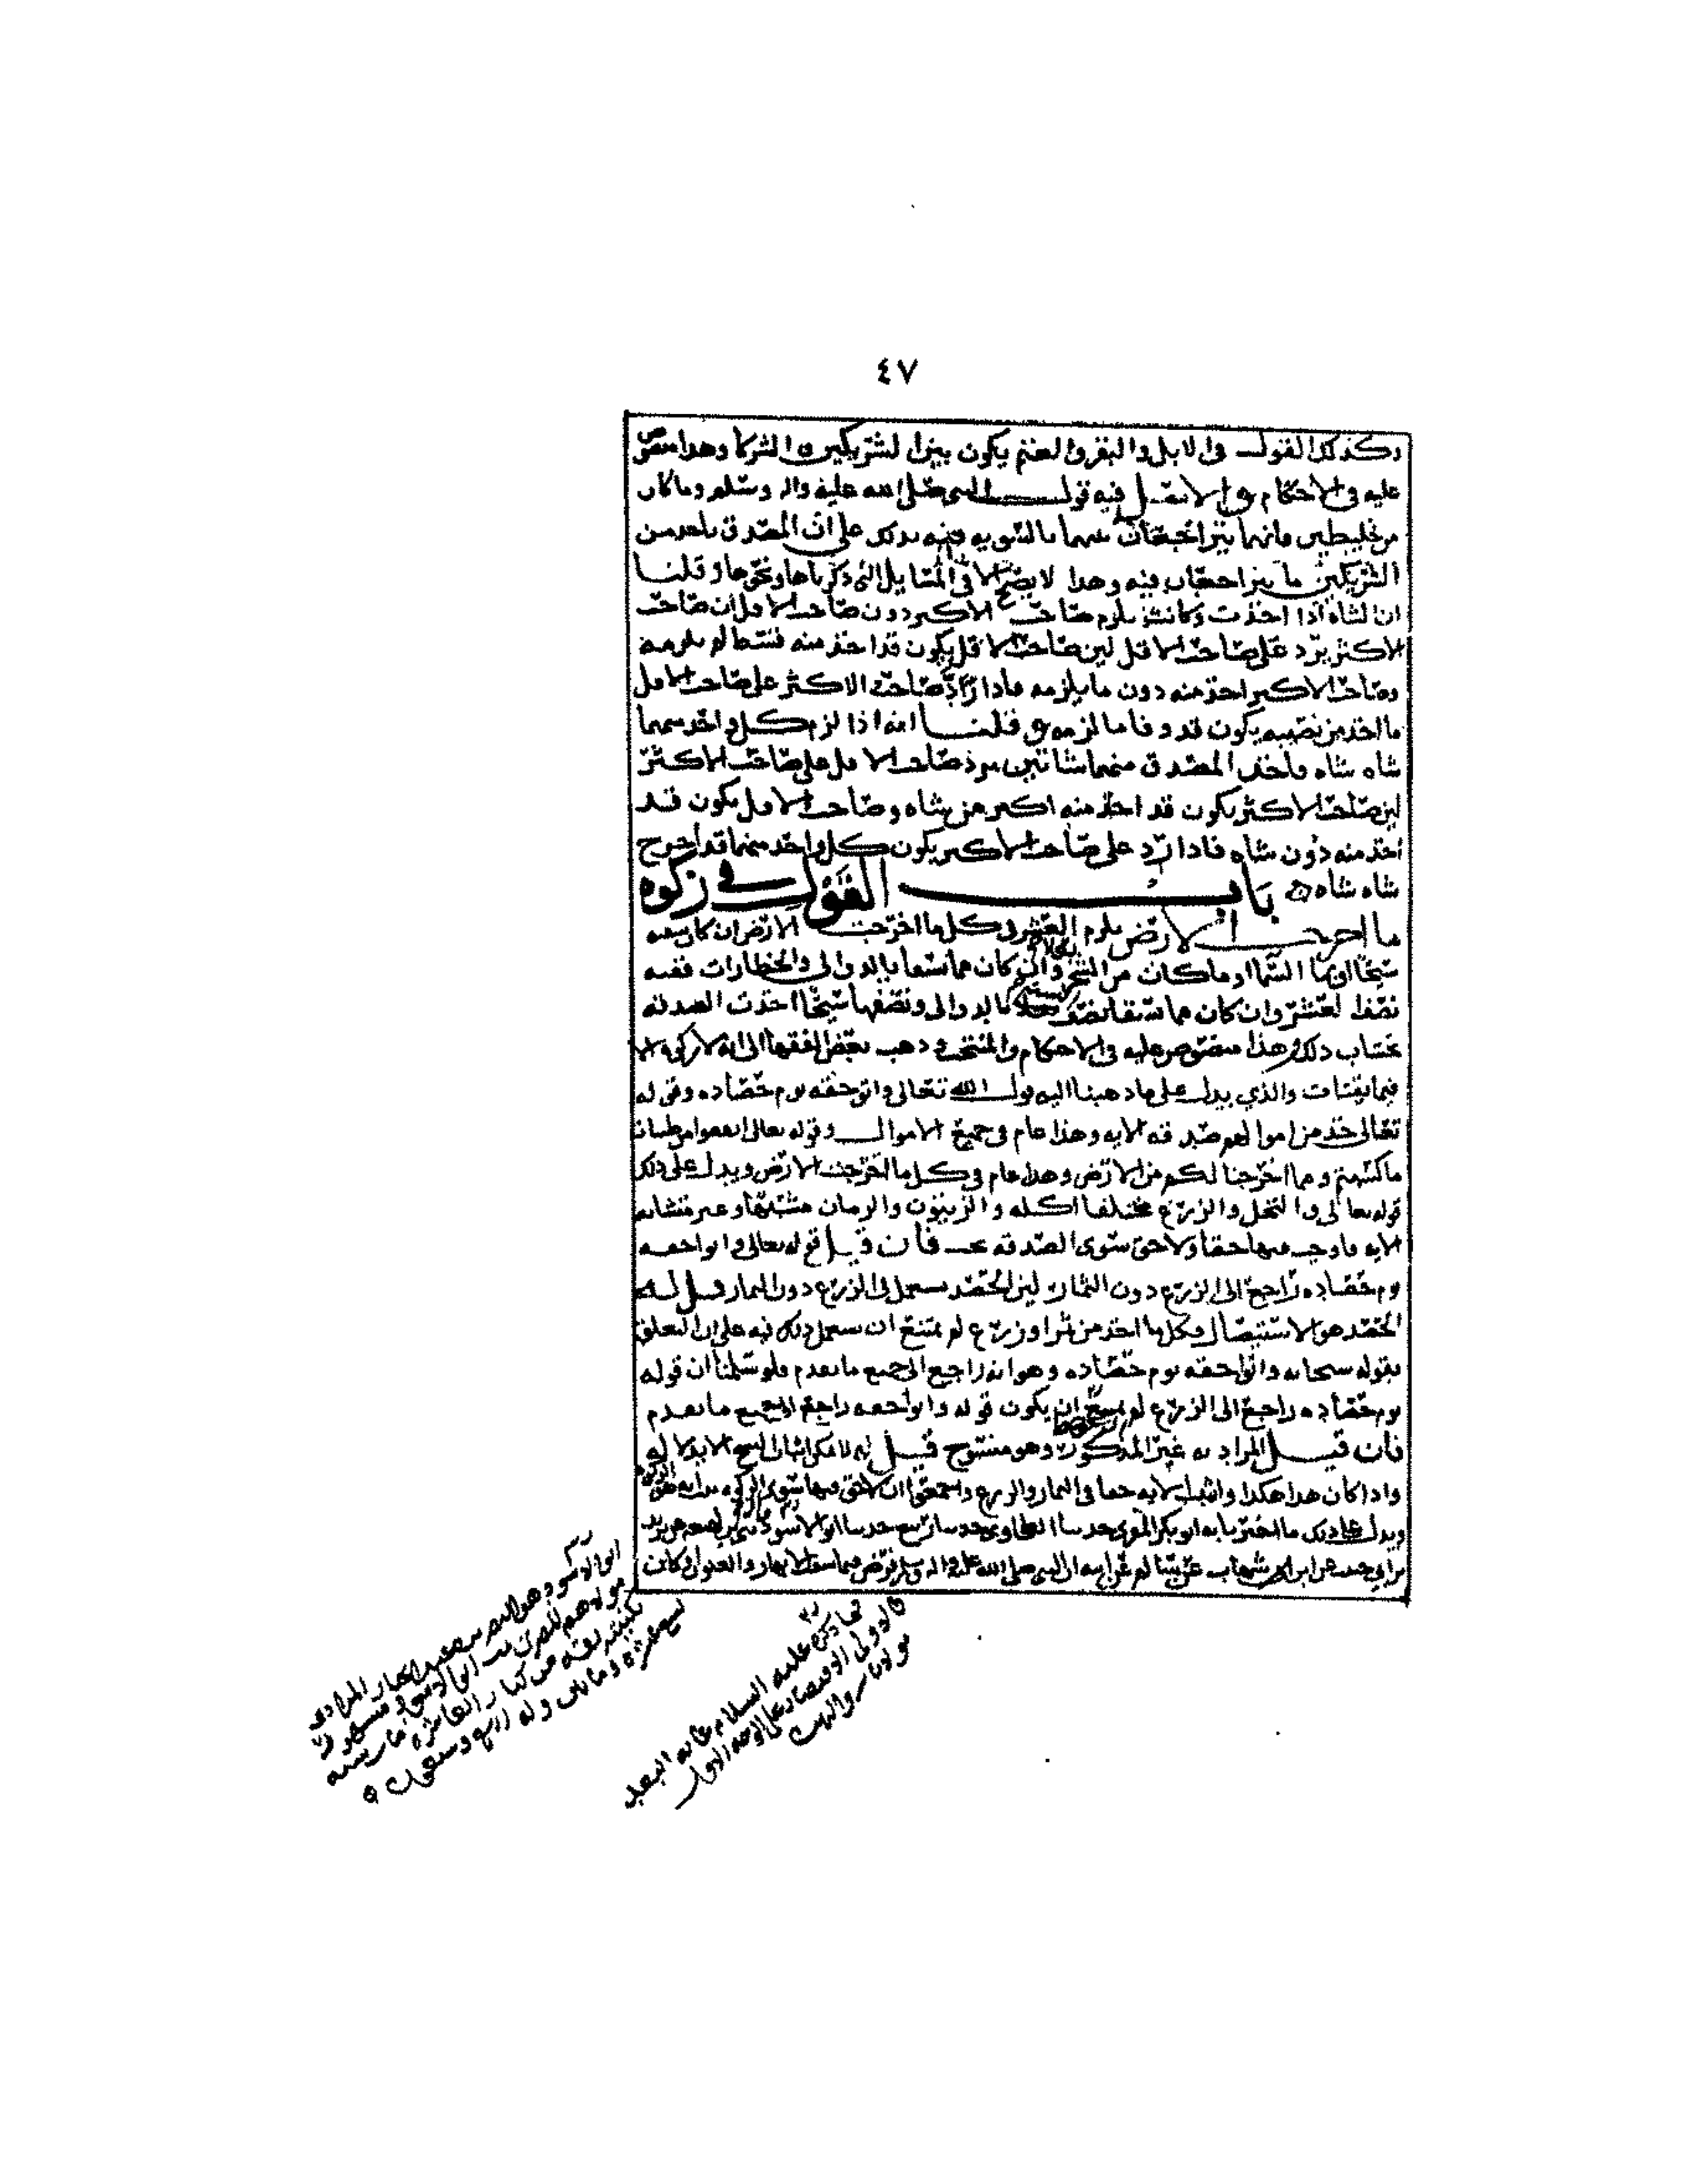 ٤٧
وكذلك القول في الابل والبقر والغنم يكون بين الشريكين والشركا وهدا منصوص
عليه في الاحكام والاصل فيه قول النبي صلى الله عليه واله وسلم وما كان
من خليطين فانهما يتراجعان بينهما بالسويه فنبه بدلك على ان المصدق ياخد من
الشريكين ما يتراجعان فيه وهدا لا يصح الا في المسايل التي ذكرناها ونحوها وقلنا
ان الشاه اذا اخذت وكانت تلزم صاحب الاكثر دون صاحب الاقل ان صاحب
الاكثر يرد على صاحب الاقل لين صاحب الاقل يكون قد اخذ منه قسط لم يلزمه
وصاحب الاكثر اخذ منه دون ما يلزمه فادا رد صاحب الاكثر على صاحب الاقل
ما اخد من نصيبه يكون قد وفا ما لزمه وقلنا انه اذا لزم كل واحد منهما
شاه شاه فاخذ المصدق منهما شاتين يرد صاحب الاقل على صاحب الاكثر
لين صاحب الاكثر يكون قد اخذ منه اكثر من شاه وصاحب الاقل يكون قد
اخذ منه دون شاه فادا رد على صاحب الاكثر يكون كل واحد منهما قد اخرج
شاه شاه باب القول في زكوه
ما اخرجت الارض يلزم العشر في كل ما اخرجت الارض ان كان سقيه
سيحا او بما السما او ما كان من الشجر وان كان مما يسقا بالدوالي والخطارات ففيه
نصف العشر وان كان مما يسقا نصف بالدوالي ونصفها سيحا اخذت الصدقه
بحساب دلك وهذا منصوص عليه في الاحكام والمنتخب ودهب بعض الفقها الى انه لا زكوه الا
فيما يقتات والذي يدل على ما دهبنا اليه قول الله تعالى واتوا حقه يوم حصاده وقوله
تعالى خذ من اموالهم صدقه الايه وهذا عام في جميع الاموال وقوله تعالى انفقوا من طيبات
ما كسبتم ومما اخرجنا لكم من الارض وهدا عام في كل ما اخرجت الارض ويدل على دلك
قوله تعالى والنخل والزرع مختلفا اكله والزيتون والرمان متشابها وغير متشابه
الايه فاوجب فيها حقا ولا حق سوى الصدقه فان قيل قوله تعالى واتوا حقه
يوم حصاده راجع الى الزرع دون الثمار لين الحصد يستعمل في الزرع دون الثمار قيل له
الحصد هو الاستيصال فكل ما اخذ من ثمر او زرع لم يمتنع ان يستعمل دلك فيه على ان التعلق
بقوله سبحانه واتوا حقه يوم حصاده وهو انه راجع الى جميع ما تقدم فلو سلمنا ان قوله
يوم حصاده راجع الى الزرع لم يمتنع ان يكون قوله واتوا حقه راجع الى جميع ما تقدم
فان قيل المراد به غير المذكور وهو منسوخ قيل له لا يمكن اثبات النسخ الا بدلاله
وادا كان هدا هكدا واثبتت الايه حقا في الثمار والزرع واجمعوا ان لا حق فيها سوى الزكوه
ويدل على دلك ما اخبرنا به ابو بكر المقري حدثنا الطحاوي حدثنا ربيع حدثنا ابو الاسود
عن ابن شهاب عن سالم عن ابيه ان النبي صلى الله عليه واله وسلم فرض فيما سقت الانهار والعيون
ابو الاسود هو النضر بن عبد الجبار المرادي
مولاهم المصري ابو الاسود مشهور
بكنيته ثقه من كبار العاشره مات سنه
تسع عشره وماتين وله اربع وسبعون
عليه السلام